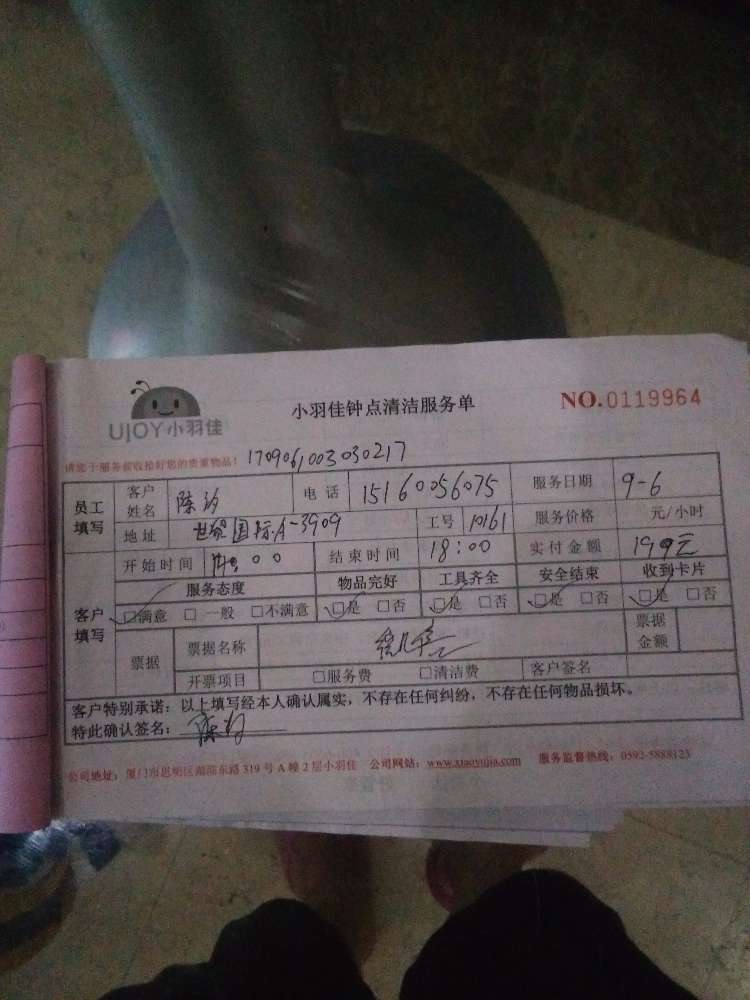 UJOY小羽佳
小羽佳钟点清洁服务单
NO.0119964
请您于服务前收拾好您的贵重物品！ 1709061003030217
员工填写 客户姓名 陈 电话 15160056075 服务日期 9-6
地址 世贸国际A-3909 工号 10161 服务价格 元/小时
开始时间 14:00 结束时间 18:00 实付金额 199元
客户填写 服务态度 物品完好 工具齐全 安全结束 收到卡片
□满意 □一般 □不满意 □是 □否 □是 □否 □是 □否 □是 □否
票据 票据名称 票据金额
开票项目 □服务费 □清洁费 客户签名
客户特别承诺：以上填写经本人确认属实，不存在任何纠纷，不存在任何物品损坏。
特此确认签名：陈
公司地址：厦门市思明区湖滨东路319号A幢2层小羽佳 公司网站：www.xiaoyujia.com 服务监督热线：0592-5888123